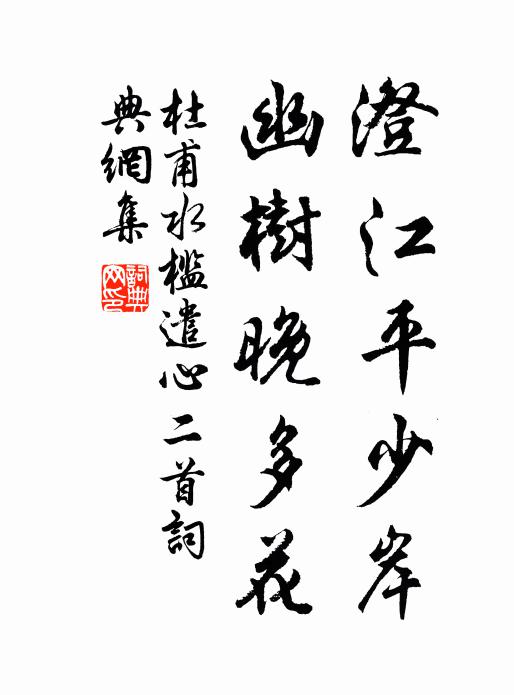 澄江平少岸
幽樹晚多花
杜甫水檻遣心二首詞
典網集
詞典
网印